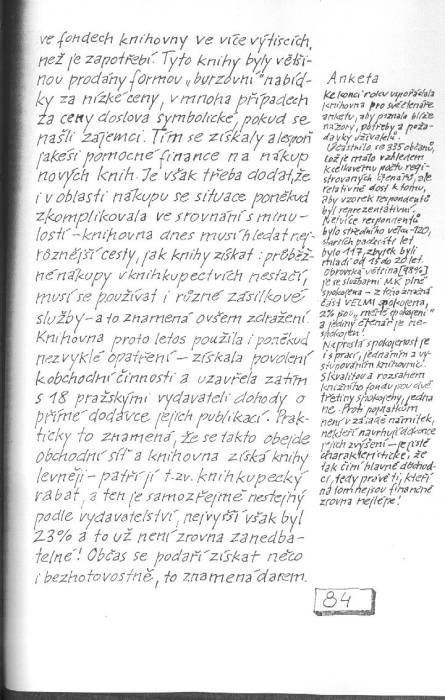 ve fondech knihovny ve více výtiscích,
než je zapotřebí. Tyto knihy byly větši-
nou prodány formou „burzovní" nabíd-
ky za nízké ceny, v mnoha případech
za ceny doslova symbolické, pokud se
našli zájemci. Tím se získaly alespoň
jakési pomocné finance na nákup
nových knih. Je však třeba dodat, že
i v oblasti nákupu se situace poněkud
zkomplikovala ve srovnání s minu-
lostí - knihovna dnes musí hledat nej-
různější cesty, jak knihy získat: průběž-
né nákupy v knihkupectvích nestačí,
musí se používat i různé zásilkové
služby - a to znamená ovšem zdražení.
Knihovna proto letos použila i poněkud
nezvyklé opatření - získala povolení
k obchodní činnosti a uzavřela zatím
s 18 pražskými vydavateli dohody o
přímé dodávce jejich publikací. Prak-
ticky to znamená, že se takto obejde
obchodní síť a knihovna získá knihy
levněji - patří jí t.zv. knihkupecký
rabat, a ten je samozřejmě nestejný
podle vydavatelství, nejvyšší však byl
23% a to už není zrovna zanedba-
telné! Občas se podaří získat něco
i bezhotovostně, to znamená darem.
Anketa
Ke konci roku uspořádala
knihovna pro své čtenáře
anketu, aby poznala blíže
názory, potřeby a poža-
davky uživatelů.
Účastnilo se 335 občanů,
což je málo vzhledem
k celkovému počtu regi-
strovaných čtenářů, ale
relativně dost k tomu,
aby vzorek respondentů
byl reprezentativní.
Nejvíce respondentů
bylo středního věku - 120,
starších padesáti let
bylo 117, zbytek byli
mladí od 15 do 20 let.
Obrovská většina [98%]
je se službami M.K. plně
spokojena - z toho značná
část VELMI spokojena,
2% jsou „méně spokojeni"
a jediný čtenář je ne-
spokojen!
Naprostá spokojenost je
i s prací, jednáním a vy-
stupováním knihovnic.
S kvalitou a rozsahem
knižního fondu jsou dvě
třetiny spokojeny, jedna
ne. Proti poplatkům
není v zásadě námitek,
někteří navrhují dokonce
jejich zvýšení - je jistě
charakteristické, že
tak činí hlavně důchod-
ci, tedy právě ti, kteří
na tom nejsou finančně
zrovna nejlépe!
84